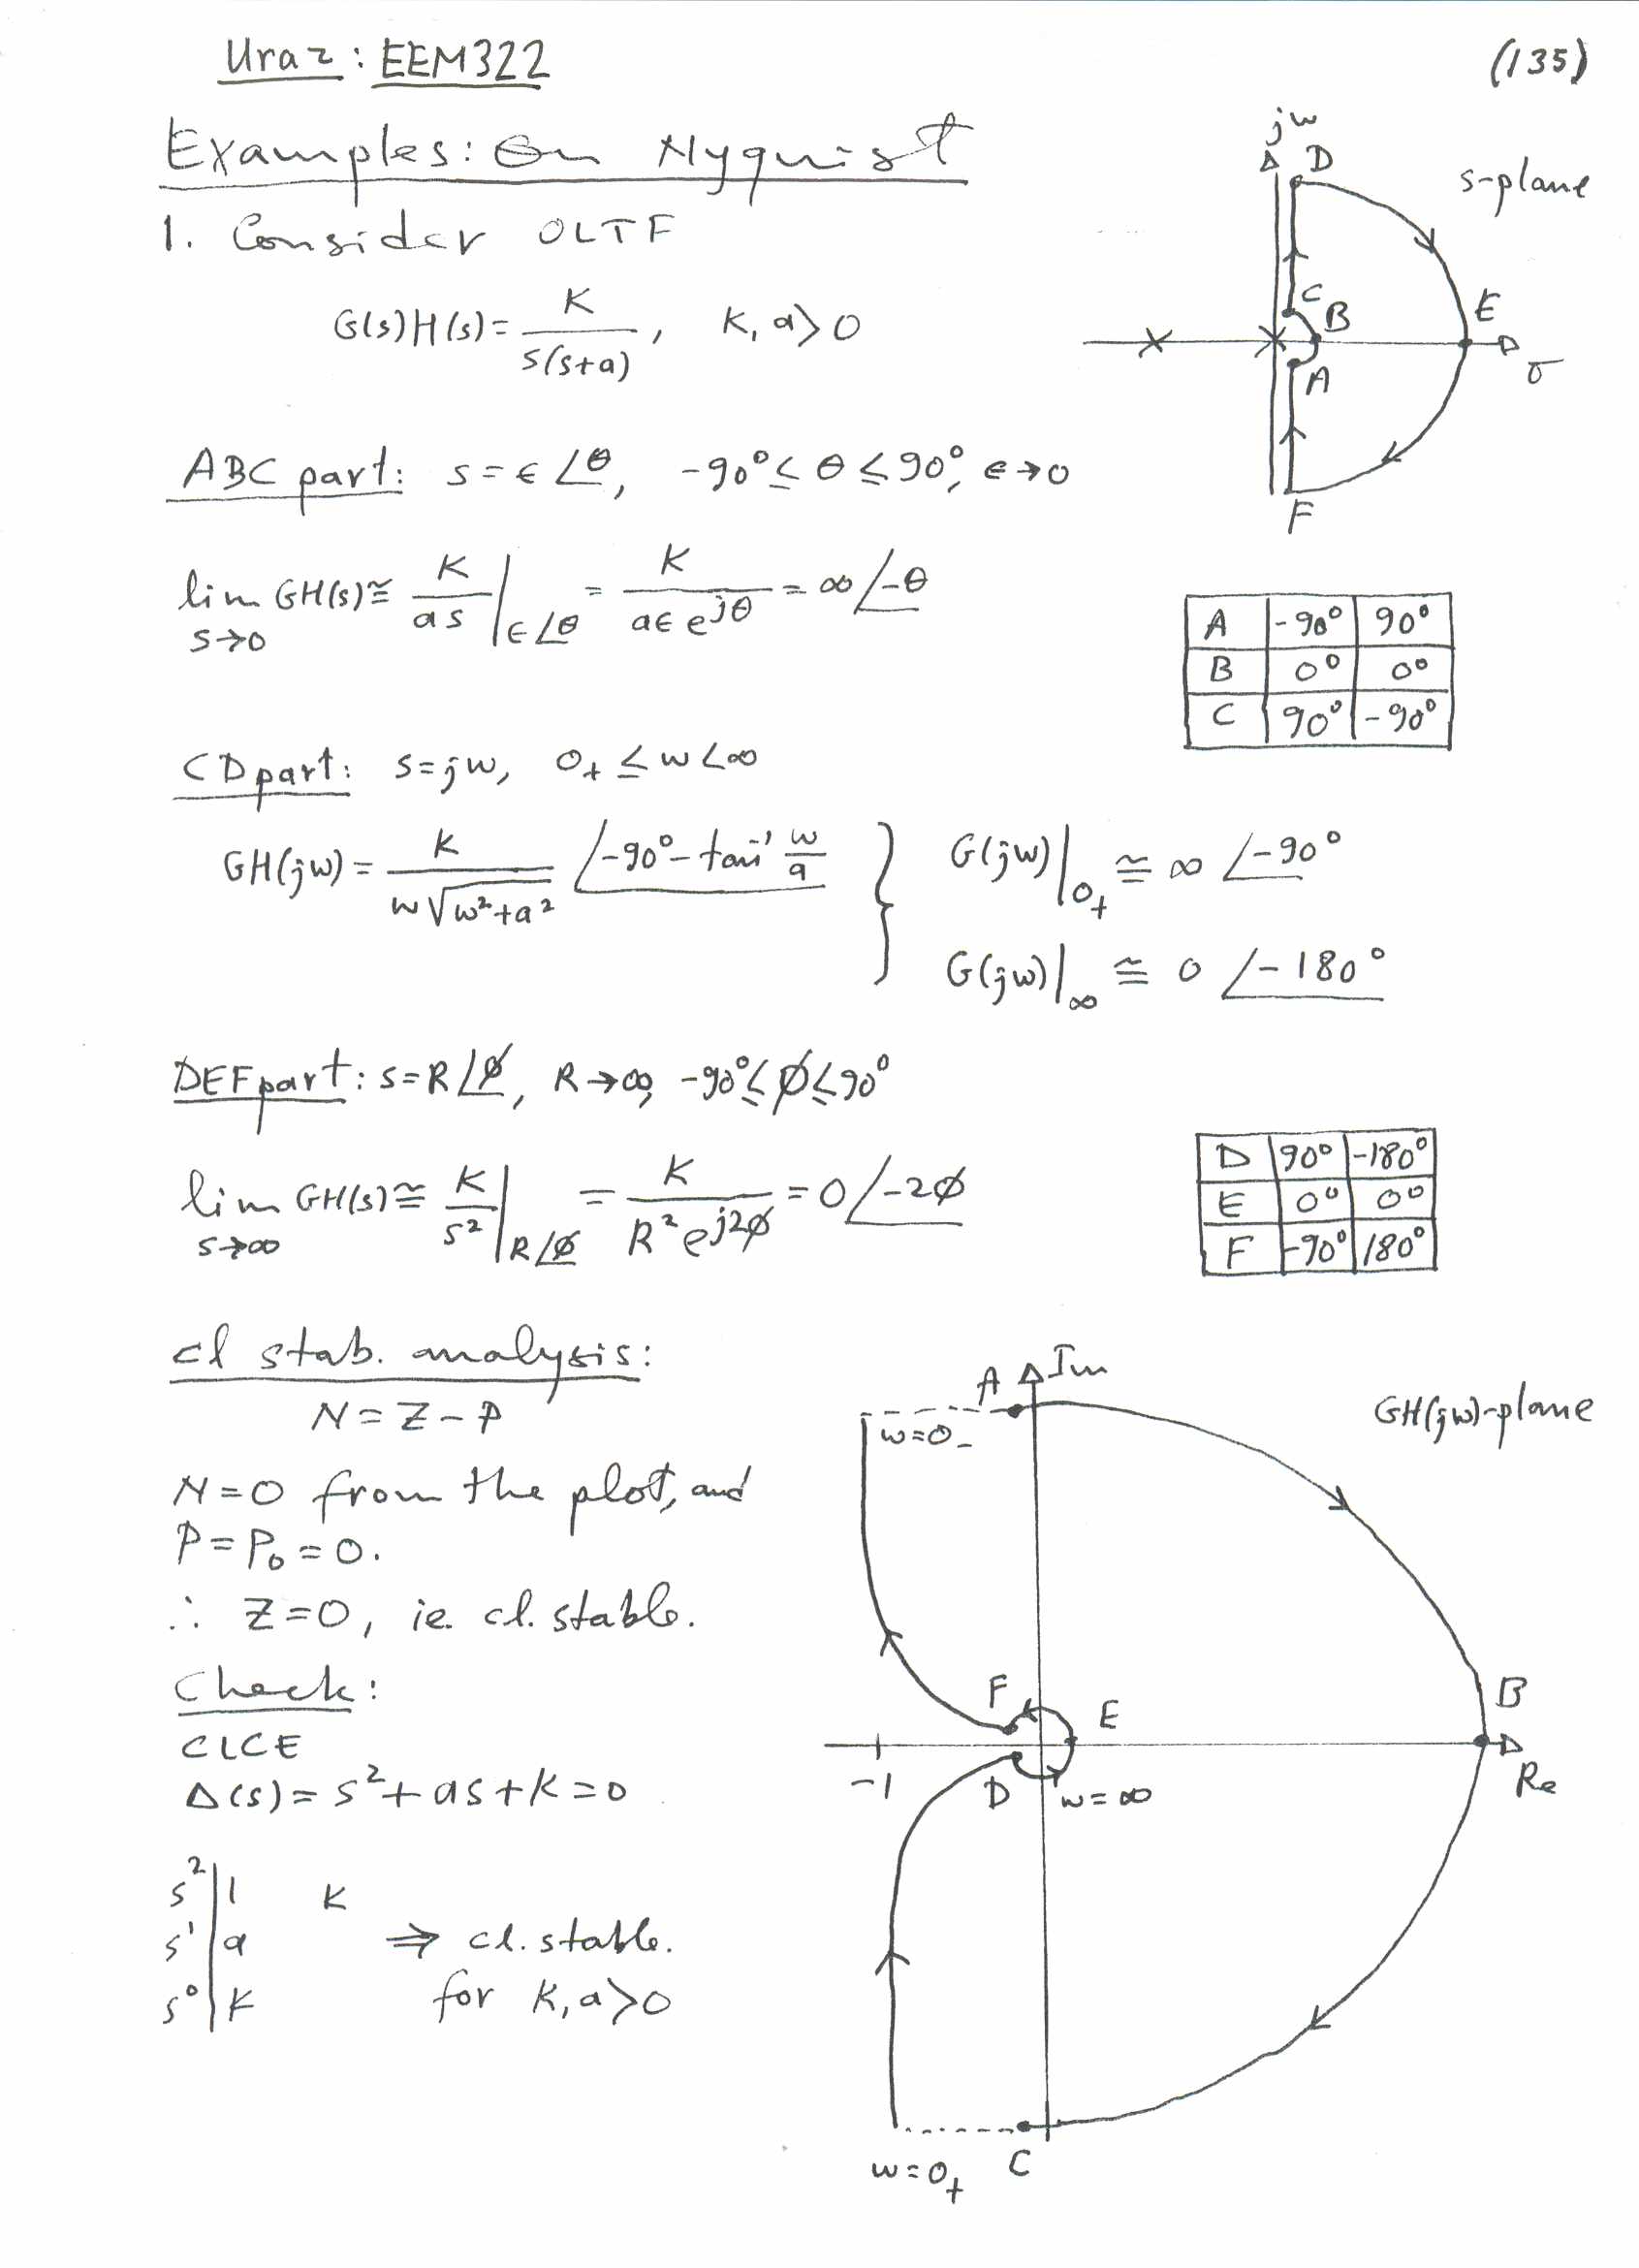 Uraz: EEM322
(135)
Examples: On Nyquist
1. Consider OLTF
G(s)H(s) = K / s(s+a), K, a > 0
jw
D
s-plane
C
B
E
σ
A
F
ABC part: s = ϵ ∠θ, -90° ≤ θ ≤ 90°, ϵ → 0
lim s→0 GH(s) ≅ K/as |ϵ∠θ = K / aϵ e^jθ = ∞ ∠-θ
A -90° 90°
B 0° 0°
C 90° -90°
CD part: s = jw, 0+ ≤ w < ∞
GH(jw) = K / w√(w²+a²) ∠-90° - tan⁻¹ w/a } G(jw)|0+ ≅ ∞ ∠-90°
G(jw)|∞ ≅ 0 ∠-180°
DEF part: s = R∠ϕ, R → ∞, -90° ≤ ϕ ≤ 90°
lim s→∞ GH(s) ≅ K/s² |R∠ϕ = K / R² e^j2ϕ = 0 ∠-2ϕ
D 90° -180°
E 0° 0°
F -90° 180°
cl stab. analysis:
N = Z - P
N = 0 from the plot, and
P = P₀ = 0.
∴ Z = 0, ie. cl. stable.
Check:
CLCE
Δ(s) = s² + as + K = 0
s² | 1 K
s¹ | a ⇒ cl. stable.
s⁰ | K for K, a > 0
A
Im
GH(jw)-plane
w=0-
F
E
B
-1
D
w=∞
Re
w=0+
C